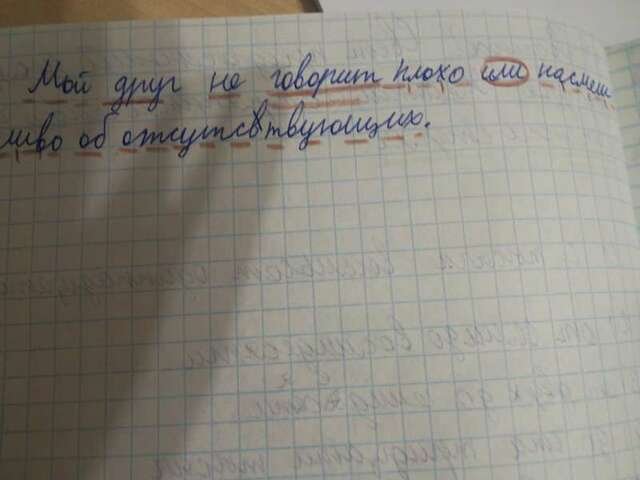 Мой друг не говорит плохо или насмеш
ливо об отсутствующих.